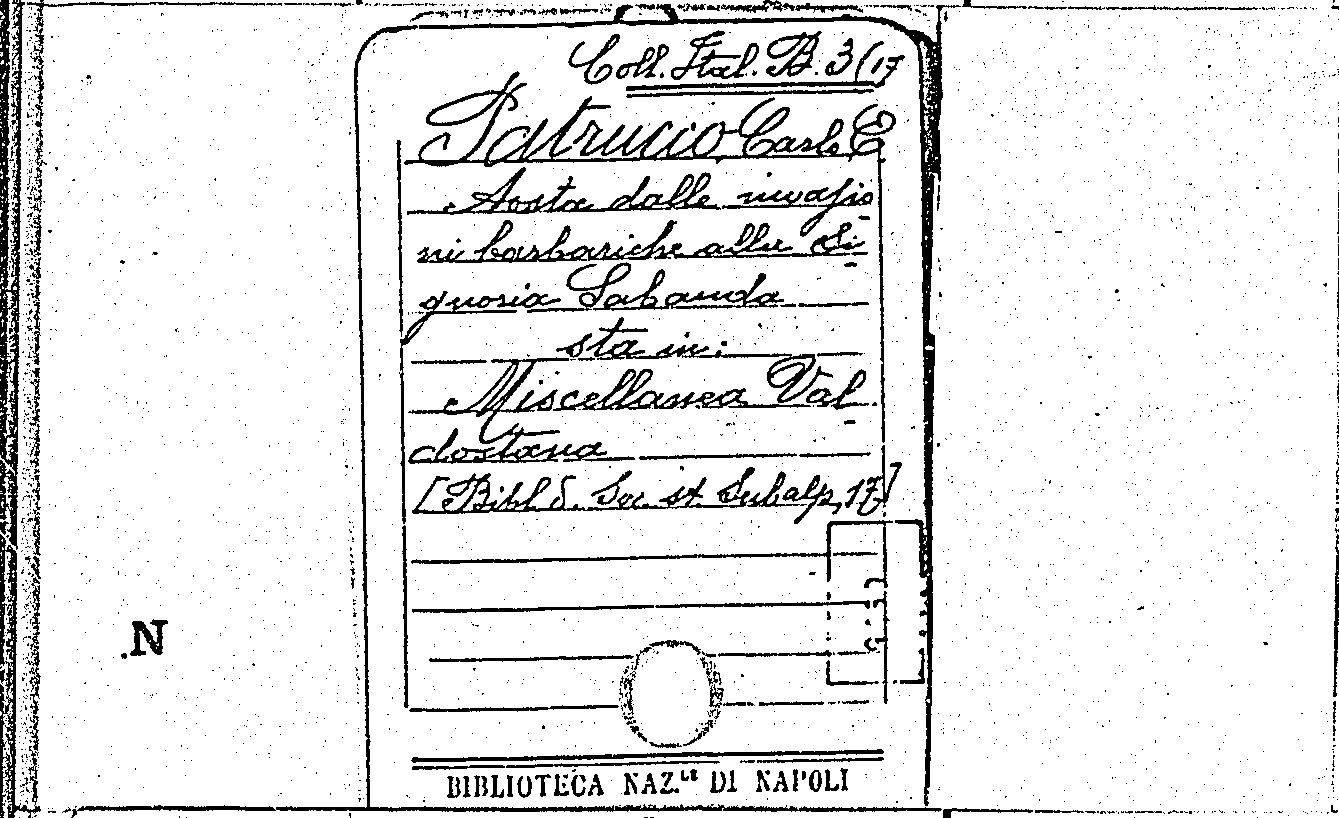 Coll. Ital. B. 3 (17
Patrucco Carlo E
Aosta dalle invasio
ni barbariche alla Si
gnoria Sabauda
sta in:
Miscellanea Val
dostana
[Bibl. d. Soc. st. Subalp, 17]
N
BIBLIOTECA NAZ.LE DI NAPOLI